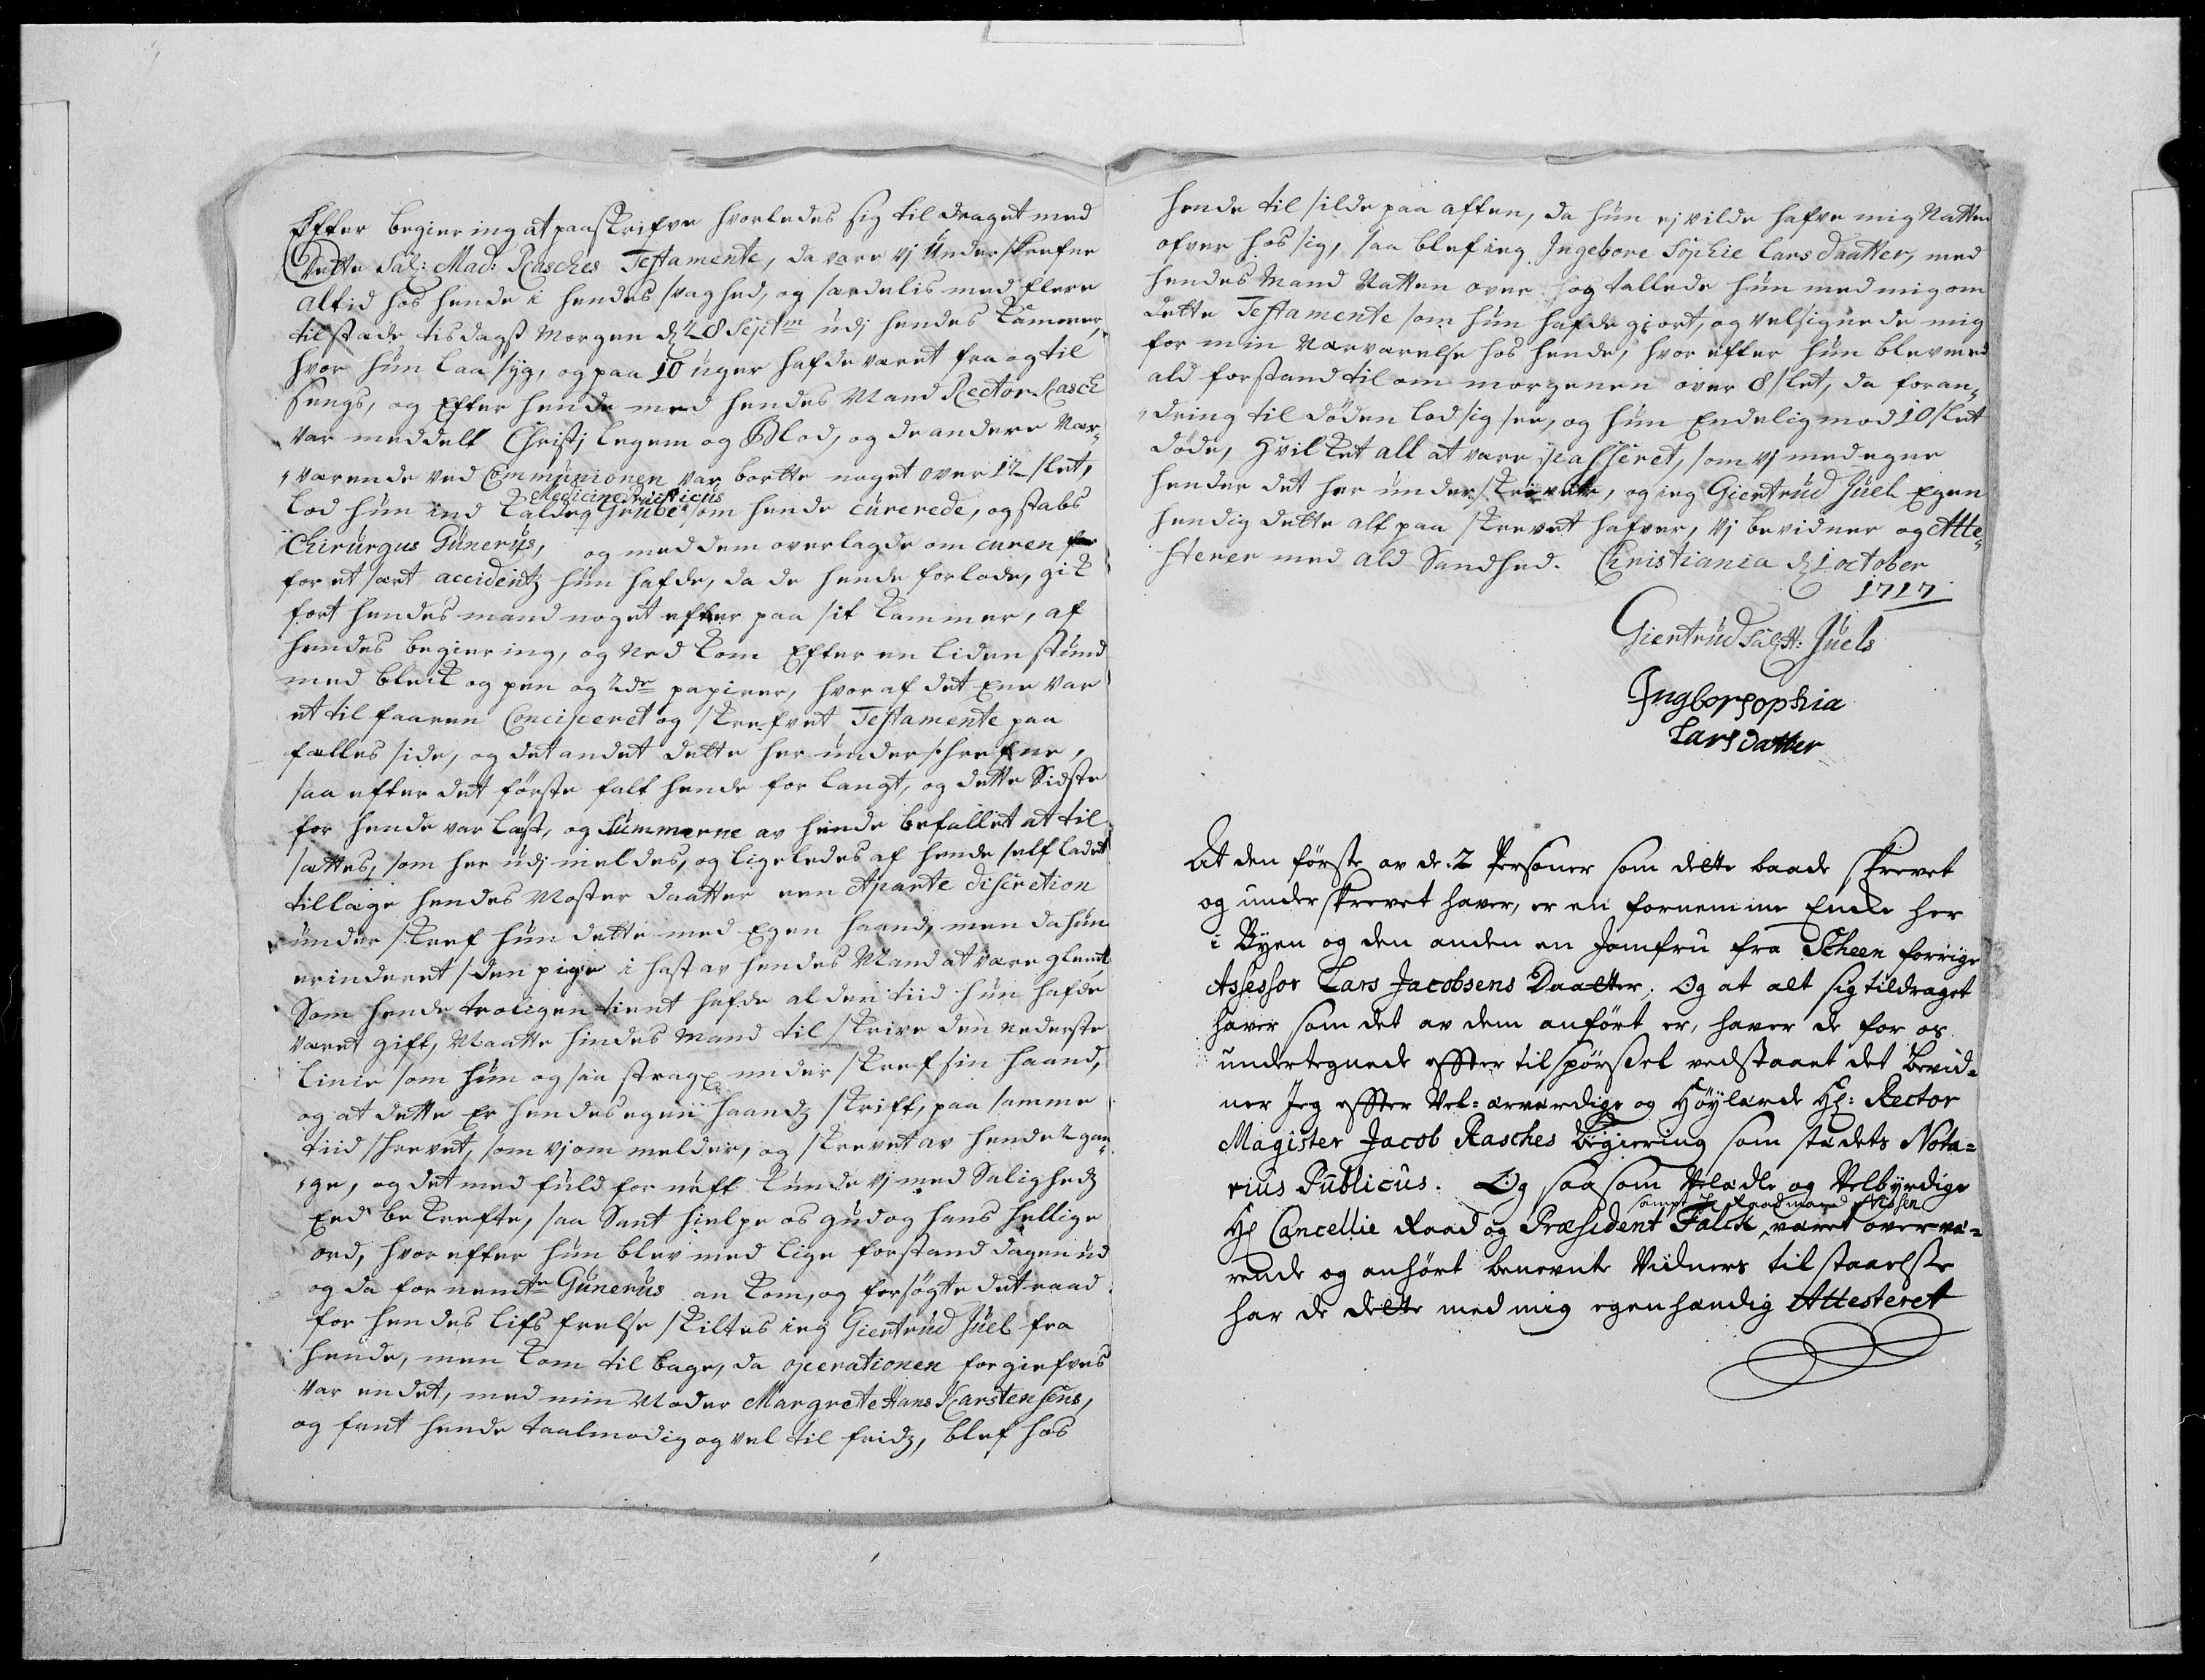 Efter begiering at paaskrifve hvorledes sig tildraget med
Dette Sal: Mad: Rasches Testamente, da vare vj Underskrefne
altid hos hende i hendes svaghed, og særdelis med flere
tilstæde tisdagst Morgen d 28 Septm udj hendes Kammer,
hvor hun laa syg, og paa 10 uger hafde været fra og til
sengs, og Efter hende med hendes Mand Rector Rasch
var meddelt Christj legem og Blod, og de andere Nær¬
værende ved Communionen var bortte noget over 12 slet,
Medicine Practicus
lod hun ind kalde Grube som hende curerede, og stabs
Chirurgus Gunerus, og med dem overlagde om curen
for et sært accidentz hun hafde, da de hende forlode, gik
fort hendes mand noget efter paa sit Kammer, af
hendes begiering, og Ned kom Efter en liden stund
med blek og pen og 2de papirer, hvoraf det Ene var
et tilfaaren Conciperet og skrefvet Testamente paa
fælles side, og det andet dette her underschrefne,
saa efter det første falt hende for langt, og dette Sidste
for hende var læst, og Summerne av hende befallet at til
sættes, som her udj meldes, og ligeledes af hende self ladet
tillæge hendes Moster daatter een Aparte discretion
under skref hun dette med Egen haand, men da hun
erinderet den pige i hast av hendes Mand at være glemt
Som hende troligen tient hafde al den tiid hun hafde
været gift, Maatte hindes Mand til skrive den nederste
linie som hun og saa strax under skref sin haand,
og at dette Er hendes egen haandz skrift, paa samme
tiid schrevet, som vj om melder, og skrevet av hende 2 gan¬
ge, og det med fuld fornuft kunde vj med Salighedz
Eed be krefte, saa Sant hielpe os gud og hans hellige
ord, hvor efter hun blev med lige forstand dagen ud
og da fornemte Gunerus an kom, og forsøgte det raad
for hendes lifs frelse skiltes ieg Giertrud Juel fra
hende, men kom til bage, da operationen for giefves
var endet, med min Moder Margrete Hans Karstensens,
og fant hende taalmodig og vel til fridz, blef hos
hende til silde paa aften, da hun ej vilde hafve mig Natten
ofver hos sig, saa blef ieg Ingebore Sophie Lars daatter, med
hendes Mand Natten over og tallede hun med mig om
dette Testamente som hun hafde giort, og velsignede mig
for min Nærværelse hos hende, hvor efter hun blev med
ald forstand til om morgenen over 8 slet, da foran¬
dring til døden lod sig see, og hun Endelig mod 10 slet
døde, Hvilket all at være passeret, som vj med egne
hender det her underskrevet, og ieg Giertrud Juel Egen
hendig dette alt paa skrevet hafver, vj bevidner og Atte¬
sterer med ald Sandhed. Christiania d 1 october
1717
Giertrud Sal H: Juels
Ingborsophia
Larsdatter
At den første av de 2 Personer som dette baade skrevet
og underskrevet haver, er en fornemme Encke her
i Byen og den anden en Jomfru fra Scheen forrige
Assessor Lars Jacobsens Daatter, Og at alt sig tildraget
haver som det av dem anført er, haver de for os
undertegnede effter tilspørssel vedstaaet det Bevid¬
ner Jeg effter Vel-ærværdige og Høylærde Hr: Rector
Magister Jacob Rasches Begiering som stædets Nota¬
rius Publicus. Og saasom Velædle og Velbyrdige
sampt Hr Raadmand Nissen
Hr Cancellie Raad og Præsident Falck været overvæ¬
rende og anhørt benevnte Vidners tilstaaelse
har de dette med mig egenhændig Attesteret